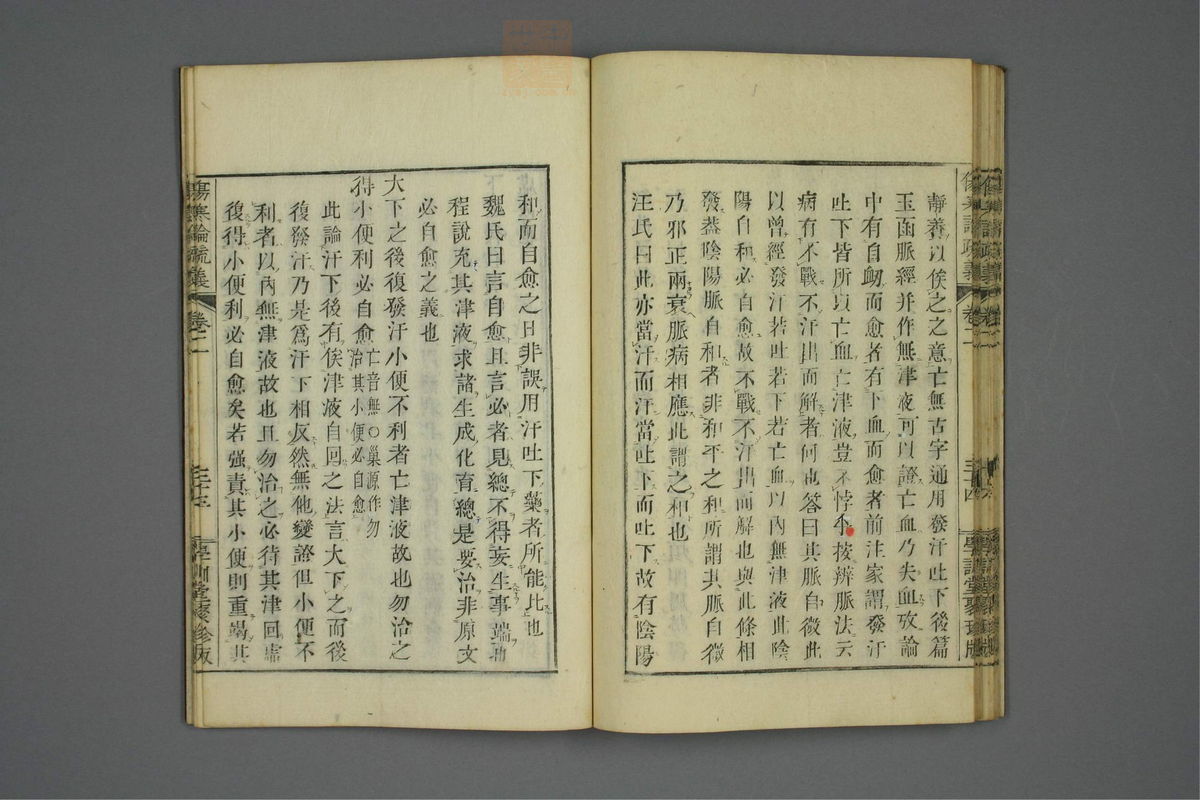 靜養以俟之之意亡無古字通用發汗吐下後篇
玉函脈經并作無津液可以證亡血乃失血攷論
中有自衂而愈者有下血而愈者前注家謂發汗
吐下皆所以亡血亡津液豈不悖乎按辨脈法云
病有不戰不汗出而解者何也答曰其脈自微此
以曾經發汗若吐若下若亡血以內無津液此陰
陽自和必自愈故不戰不汗出而解也與此條相
發蓋陰陽脈自和者非和平之和所謂其脈自微
乃邪正兩衰脈病相應此謂之和也
汪氏曰此亦當汗而汗當吐下而吐下故有陰陽
和而自愈之日非誤用汗吐下藥者所能比也
魏氏曰言自愈且言必者見總不得妄生事端
程說充其津液求諸生成化育總是要治非原文
必自愈之義也
大下之後復發汗小便不利者亡津液故也勿治之
得小便利必自愈亡音無○巢源作勿
治其小便必自愈
此論汗下後有俟津液自回之法言大下之而後
復發汗乃是爲汗下相反然無他變證但小便不
利者以內無津液故也且勿治之必待其津回
復得小便利必自愈矣若强責其小便則重竭其
傷寒論疏義
卷二
三十三
學訓堂聚珍版
三十四
學訓堂聚珍版